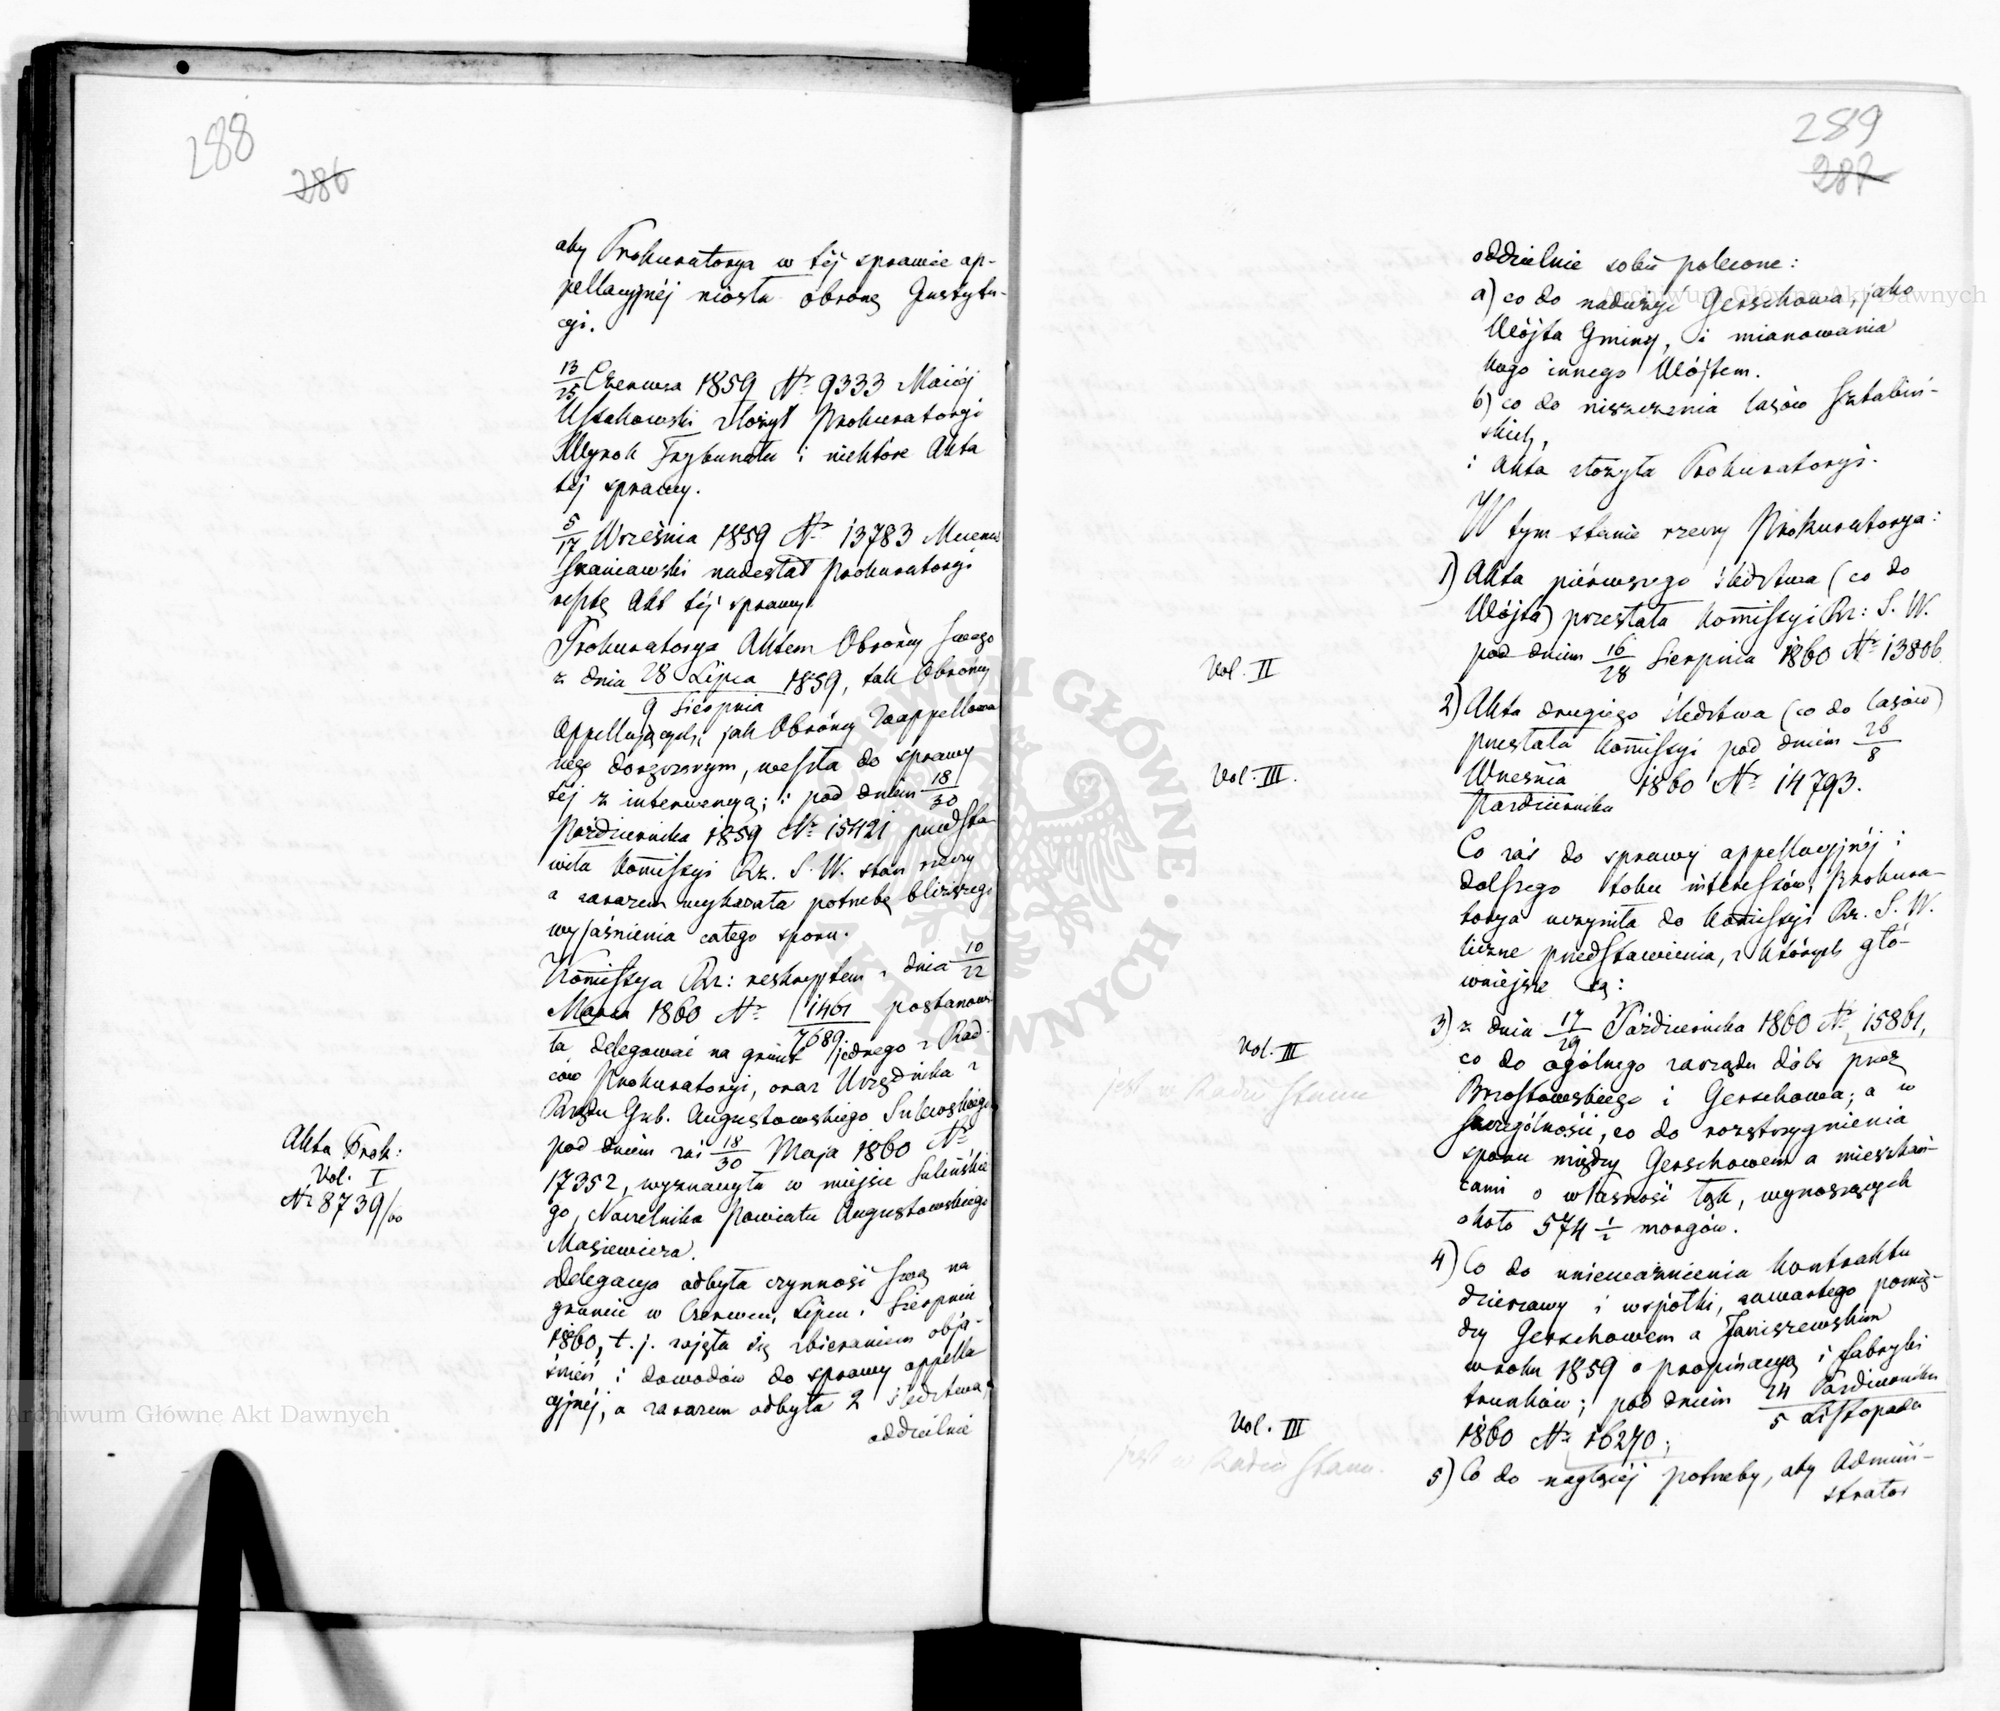 288
286
aby Prokuratorya w téj sprawie ap-
pellacyjnéj niosła obronę Instytu-
cyi.
13/25 Czerwca 1859 Nr 9333 Maciéj
Ustakowski złożył Prokuratoryi
Wyrok Trybunału i niektóre Akta
téj sprawy.
5/17 Września 1859 Nr 13783 Mecenas
Szaniawski nadesłał Prokuratoryi
resztę Akt téj sprawy.
Prokuratorya Aktem Obrończy swego
z dnia 28 Lipca / 9 Sierpnia 1859, tak Obrońcy
Appellujących, jak Obrońcy Zaappellowa
nego doręczonym, weszła do sprawy
téj z interwencyą; i pod dniem 18/30
Października 1859 Nr 15421 przedsta
wiła Kommissyi Rz. S. W. stan rzeczy
a zarazem wykazała potrzebę bliższego
wyjaśnienia całego sporu.
Kommissya Rz: reskryptem z dnia 10/22
Marca 1860 Nr 1461/7689 postanowi
ła delegować na grunt jednego z Rad-
ców Prokuratoryi, oraz Urzędnika z
Rządu Gub. Augustowskiego Sulewskiego
pod dniem zaś 18/30 Maja 1860 Nr
17352, wyznaczyła w miejsce Sulińskie
go, Naczelnika Powiatu Augustowskiego
Masiewicza.
Delegacya odbyła czynność swą na
gruncie w Czerwcu, Lipcu i Sierpniu
1860, t. j. zajęła się zbieraniem obja-
śnień i dowodów do sprawy appella
cyjnéj, a zarazem odbyła 2 śledztwa,
oddzielnie
Akta Prok:
Vol. I
Nr 8739/60
289
287
oddzielnie sobie polecone:
a) co do nadużyć Gerschowa, jako
Wójta Gminy, i mianowania
kogo innego Wójtem.
b) co do niszczenia lasów Sztabiń-
skich,
i Akta złożyła Prokuratoryi.
W tym stanie rzeczy Prokuratorya:
1) Akta piérwszego śledztwa (co do
Wójta) przesłała Kommissyi Rz: S. W.
pod dniem 16/28 Sierpnia 1860 Nr 13806
Vol. II
2) Akta drugiego śledztwa (co do lasów)
przesłała Kommissyi pod dniem 26/8
Września/Października 1860 Nr 14793.
Vol. III.
Co zaś do sprawy appellacyjnéj i
dalszego toku interessów, Prokura-
torya uczyniła do Kommissyi Rz. S. W.
liczne przedstawienia, z których głó-
wniejsze są:
3) z dnia 17/29 Października 1860 Nr 15861,
co do ogólnego zarządu dóbr przez
Brzostowskiego i Gerschowa; a w
szczególności, co do rozstrzygnienia
sporu między Gerschowem a mieszkań-
cami o własność łąk, wynoszących
około 574 1/2 morgów.
Vol. III
jest w Radzie Stanu
4) Co do unieważnienia kontraktu
dzierżawy i wspólki, zawartego pomię-
dzy Gerschowem a Janiszewskim
w roku 1859 o propinacyą i fabryki
trunków; pod dniem 24 Października / 5 Listopada
1860 Nr 16270;
Vol. III
jest w Radzie Stanu.
5) Co do nagłéj potrzeby, aby Admini-
strator
Archiwum Główne Akt Dawnych
Archiwum Główne Akt Dawnych
ARCHIWUM GŁÓWNE AKT DAWNYCH